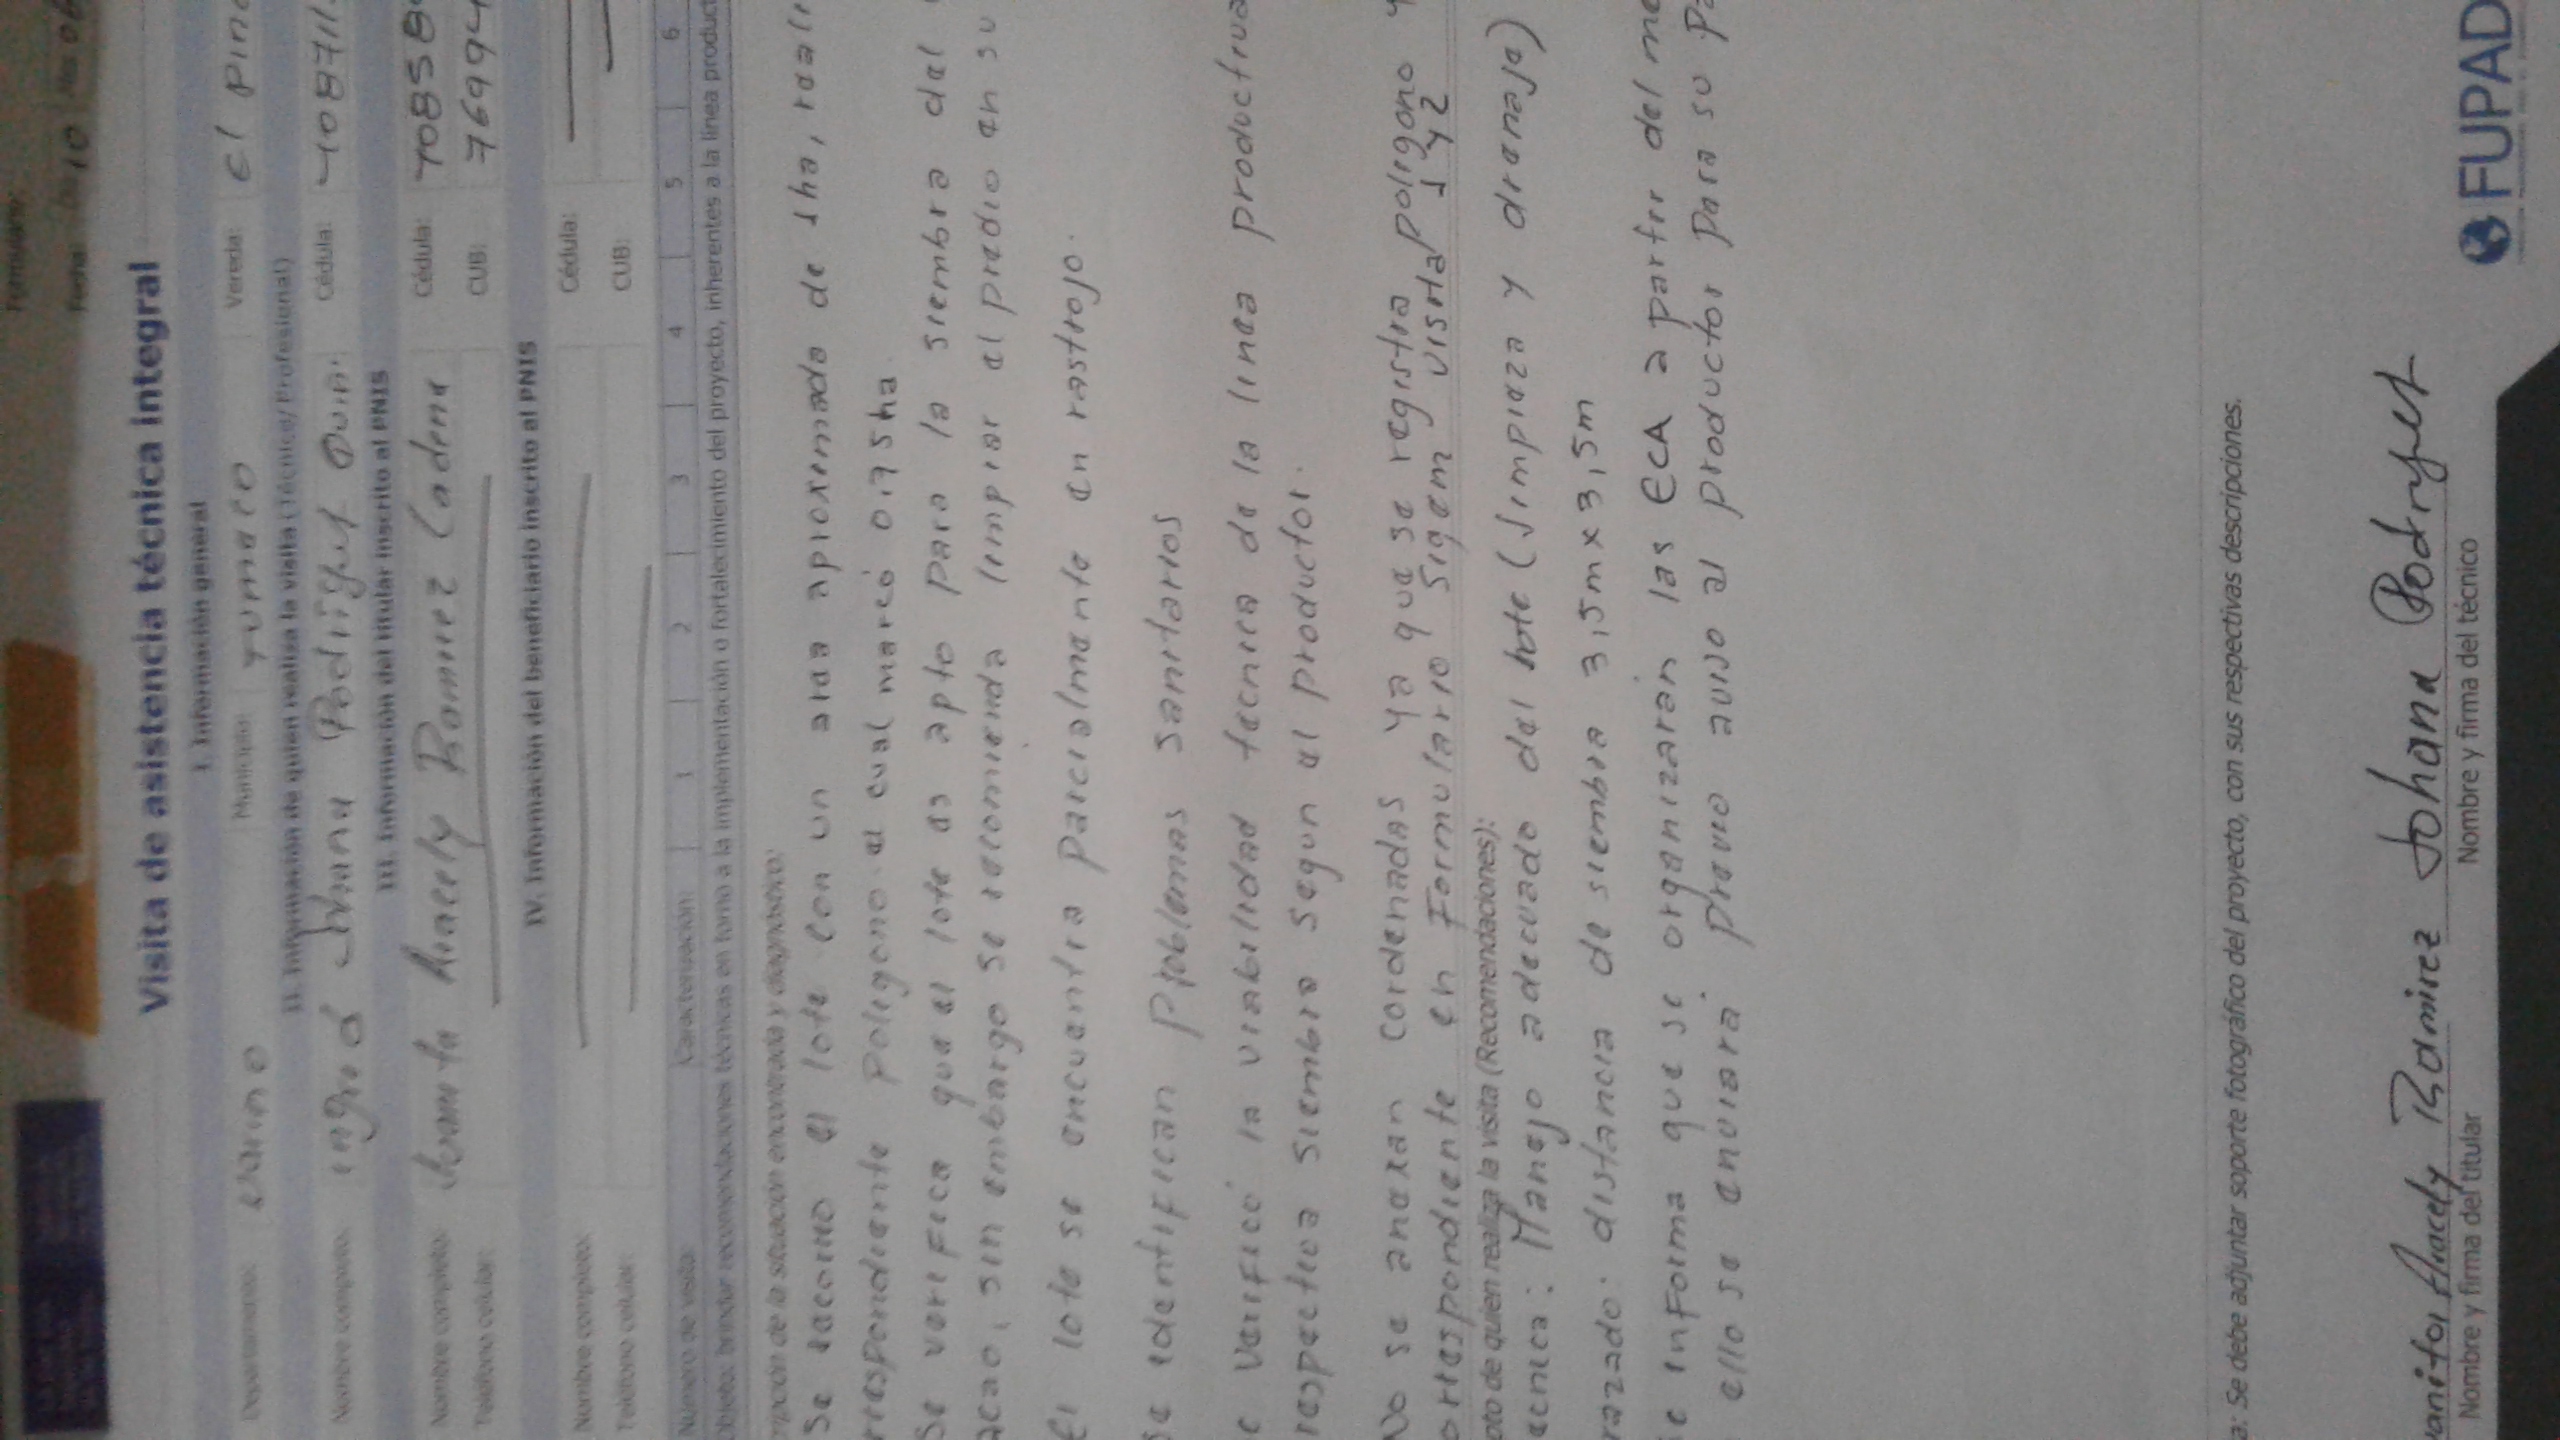 Formulario:
Fecha: Día 10 Mes 06
Visita de asistencia técnica integral
I. Información general
Departamento: Nariño Municipio: Tumaco Vereda: El Pinde
II. Información de quien realiza la visita (Técnico/ Profesional)
Nombre completo: Johana Cédula: 10871
III. Información del titular inscrito al PNIS
Nombre completo: Aracely Ramirez Cadena Cédula: 10858
Teléfono celular: CUB: 76994
IV. Información del beneficiario inscrito al PNIS
Nombre completo: Cédula:
Teléfono celular: CUB:
Número de visita: Caracterización: 1 2 3 4 5 6
Objeto: brindar recomendaciones técnicas en torno a la implementación o fortalecimiento del proyecto, inherentes a la línea product
ripción de la situación encontrada y diagnóstico:
Se recorrió el lote con un area aproximada de 1ha, reali
rrespondiente poligono el cual marcó 0.75ha
Se verifica que el lote es apto para la siembra del
acao, sin embargo se recomienda limpiar el predio en su
El lote se encuentra parcialmente en rastrojo.
Se identifican problemas sanitarios
e verificó la viabilidad tecnica de la linea productiva
respectiva siembra segun el productor.
No se anexan cordenadas ya que se registra poligono y
orrespondiente en Formulario Sigem visita 1 y 2
pto de quien realiza la visita (Recomendaciones):
ecnica: Manejo adecuado del lote (Limpieza y drenaje)
razado: distancia de siembra 3,5m x 3,5m
e informa que se organizarán las ECA a partir del me
ello se enviara previo aviso al productor para su pa
a: Se debe adjuntar soporte fotográfico del proyecto, con sus respectivas descripciones.
Aracely Ramirez Johana Rodríguez
Nombre y firma del titular Nombre y firma del técnico
FUPAD